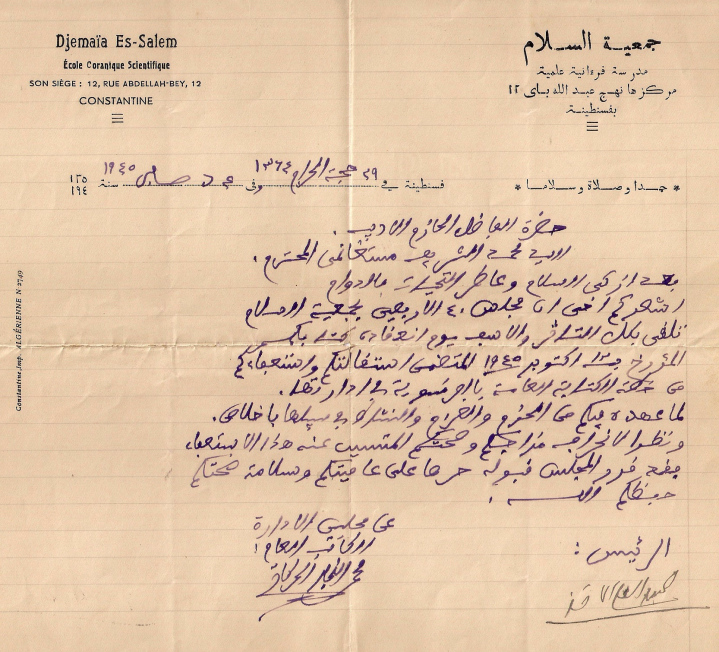 Djemaïa Es-Salem
École Coranique Scientifique
SON SIÈGE : 12, RUE ABDELLAH-BEY, 12
CONSTANTINE
جمعية السلام
مدرسة قرءانية علمية
مركزها نهج عبد الله باى ١٢
بقسنطينة
* حمدا وصلاة وسلاما *
قسنطينة في ٢٩ حجة الحرام ١٣٦٤ وفى سنة ١٩٤٥
١٣٥
١٩٤
حضرة الفاضل الحازم الأديب.
محمد الشريف مستغانمى المحترم.
بعد أزكى السلام وعاطر التحيات بالدوام
أشعركم أخى ان مجلس الأربعين لجمعية السلام
تلقى بكل التأثر والأسف يوم انعقاده
المؤرخ اكتوبر ١٩٤٥ المتضمن استقالتكم واستعفاءكم
من خطة الكتابة العامة بالفرنسوية فى ادارتها.
لما عهده فيكم من الحزم
ونظرا لانحراف مزاجكم وصحتكم المتسبب عنه هذا الاستعفاء
فقد قرر المجلس قبوله حرصا على عافيتكم وسلامة صحتكم
حفظكم الله.
عن مجلس الادارة
الكاتب العام:
الرئيس:
Constantine, Imp. ALGÉRIENNE N 2749